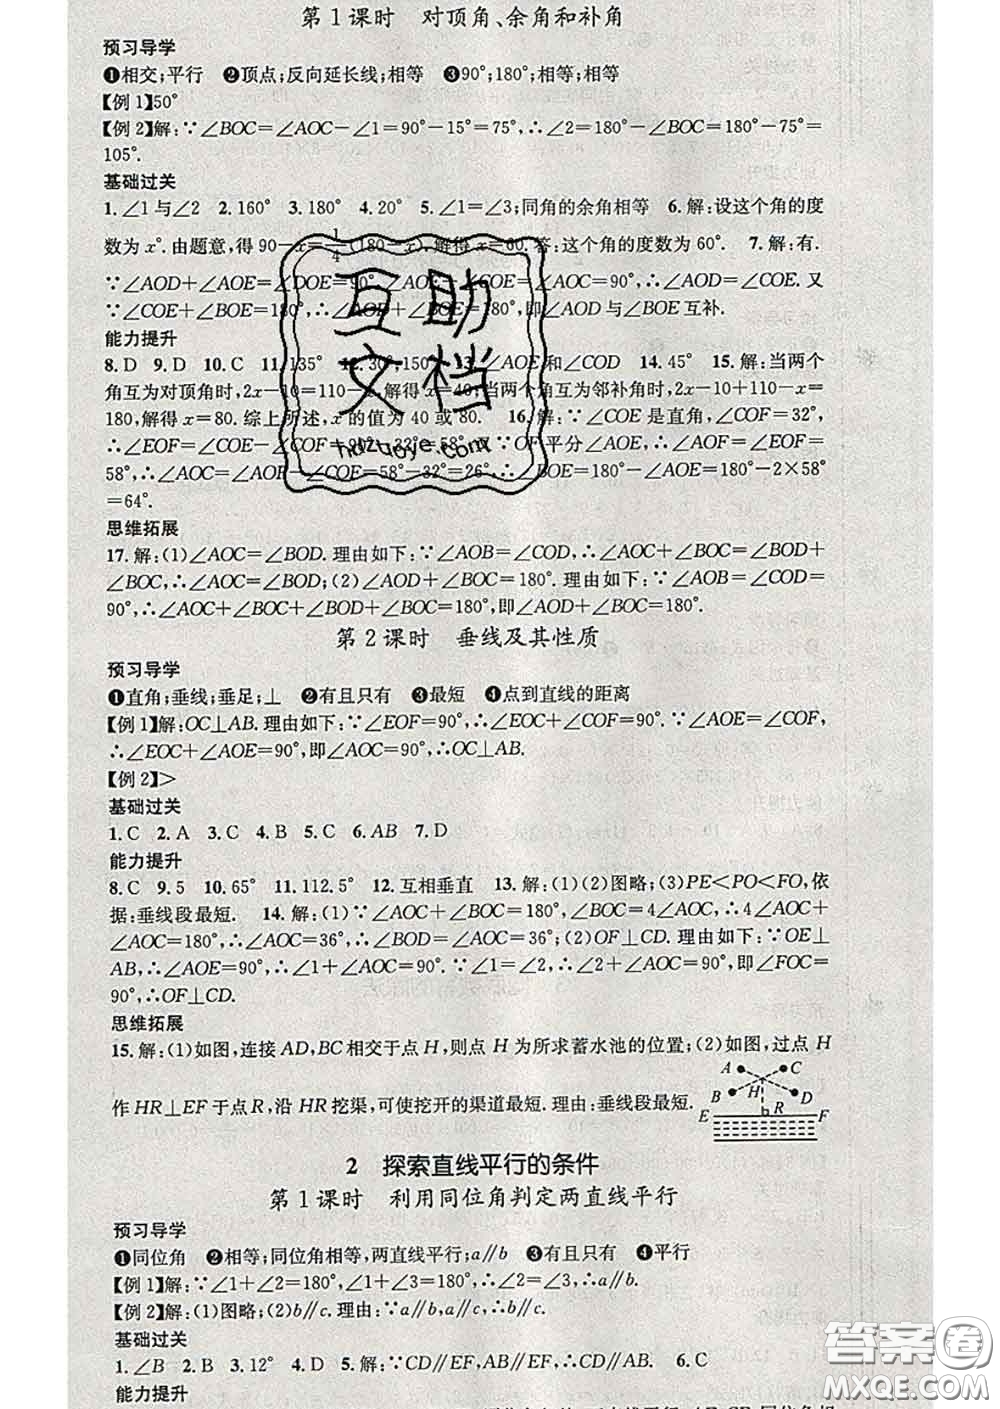 第1课时 对顶角、余角和补角
预习导学
❶相交;平行 ❷顶点;反向延长线;相等 ❸90°;180°;相等;相等
【例1】50°
【例2】解:∵∠BOC=∠AOC-∠1=90°-15°=75°,∴∠2=180°-∠BOC=180°-75°=
105°.
基础过关
1.∠1与∠2 2.160° 3.180° 4.20° 5.∠1=∠3;同角的余角相等 6.解:设这个角的度
数为x°.由题意,得90-x=1/4(180-x),解得x=60.答:这个角的度数为60°. 7.解:有.
∵∠AOD+∠AOE=∠DOE=90°,∠AOD=∠COE.又
∵∠COE+∠BOE=180°,即∠AOD与∠BOE互补.
能力提升
8.D 9.D 10.C 11.135° 12.30°,150° 13.∠AOE和∠COD 14.45° 15.解:当两个
角互为对顶角时,2x-10=110-x,解得x=40;当两个角互为邻补角时,2x-10+110-x=
180,解得x=80.综上所述,x的值为40或80. 16.解:∵∠COE是直角,∠COF=32°,
∴∠EOF=∠COE-∠COF=90°-32°=58°.又∵OF平分∠AOE,∴∠AOF=∠EOF=
58°,∴∠AOC=∠AOF-∠COF=58°-32°=26°,∴∠BOE=180°-∠AOE=180°-2×58°
=64°.
思维拓展
17.解:(1)∠AOC=∠BOD.理由如下:∵∠AOB=∠COD,∴∠AOC+∠BOC=∠BOD+
∠BOC,∴∠AOC=∠BOD;(2)∠AOD+∠BOC=180°.理由如下:∵∠AOB=∠COD=
90°,∴∠AOC+∠BOC+∠BOD+∠BOC=180°,即∠AOD+∠BOC=180°.
第2课时 垂线及其性质
预习导学
❶直角;垂线;垂足;⊥ ❷有且只有 ❸最短 ❹点到直线的距离
【例1】解:OC⊥AB.理由如下:∵∠EOF=90°,∴∠EOC+∠COF=90°.∵∠AOE=∠COF,
∴∠EOC+∠AOE=90°,即∠AOC=90°,∴OC⊥AB.
【例2】>
基础过关
1.C 2.A 3.C 4.B 5.C 6.AB 7.D
能力提升
8.C 9.5 10.65° 11.112.5° 12.互相垂直 13.解:(1)(2)图略;(3)PE<PO<FO,依
据:垂线段最短. 14.解:(1)∵∠AOC+∠BOC=180°,∠BOC=4∠AOC,∴4∠AOC+
∠AOC=180°,∴∠AOC=36°,∴∠BOD=∠AOC=36°;(2)OF⊥CD.理由如下:∵OE⊥
AB,∴∠AOE=90°,∴∠1+∠AOC=90°.∵∠1=∠2,∴∠2+∠AOC=90°,即∠FOC=
90°,∴OF⊥CD.
思维拓展
15.解:(1)如图,连接AD,BC相交于点H,则点H为所求蓄水池的位置;(2)如图,过点H
作HR⊥EF于点R,沿HR挖渠,可使挖开的渠道最短.理由:垂线段最短.
A C
B H D
E R F
2 探索直线平行的条件
第1课时 利用同位角判定两直线平行
预习导学
❶同位角 ❷相等;同位角相等,两直线平行;a∥b ❸有且只有 ❹平行
【例1】解:∵∠1+∠2=180°,∠1+∠3=180°,∴∠2=∠3,∴a∥b.
【例2】解:(1)图略;(2)b∥c.理由:∵a∥b,a∥c,∴b∥c.
基础过关
1.∠B 2.B 3.12° 4.D 5.解:∵CD∥EF,AB∥EF,∴CD∥AB. 6.C
能力提升
互助
文档
hdzuoye.com
答案圈
MXQE.COM